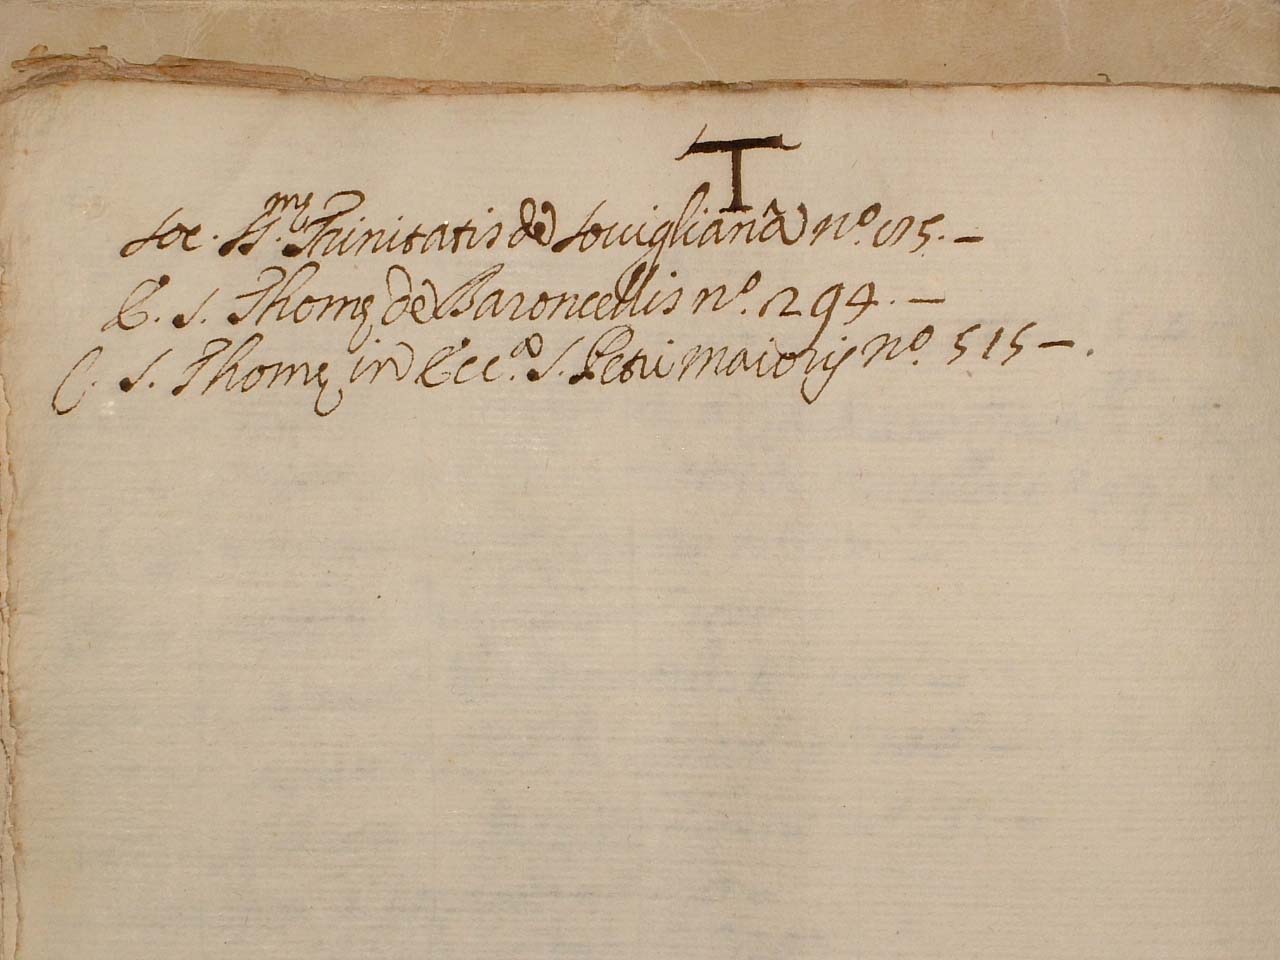 T
Soc. SS.mę Trinitatis de Lovigliana nº. 185. –
E. S. Thomę de Baroncellis nº. 294. –
C. S. Thomę in Ecc.ª S. Petri maioris nº. 515 – .